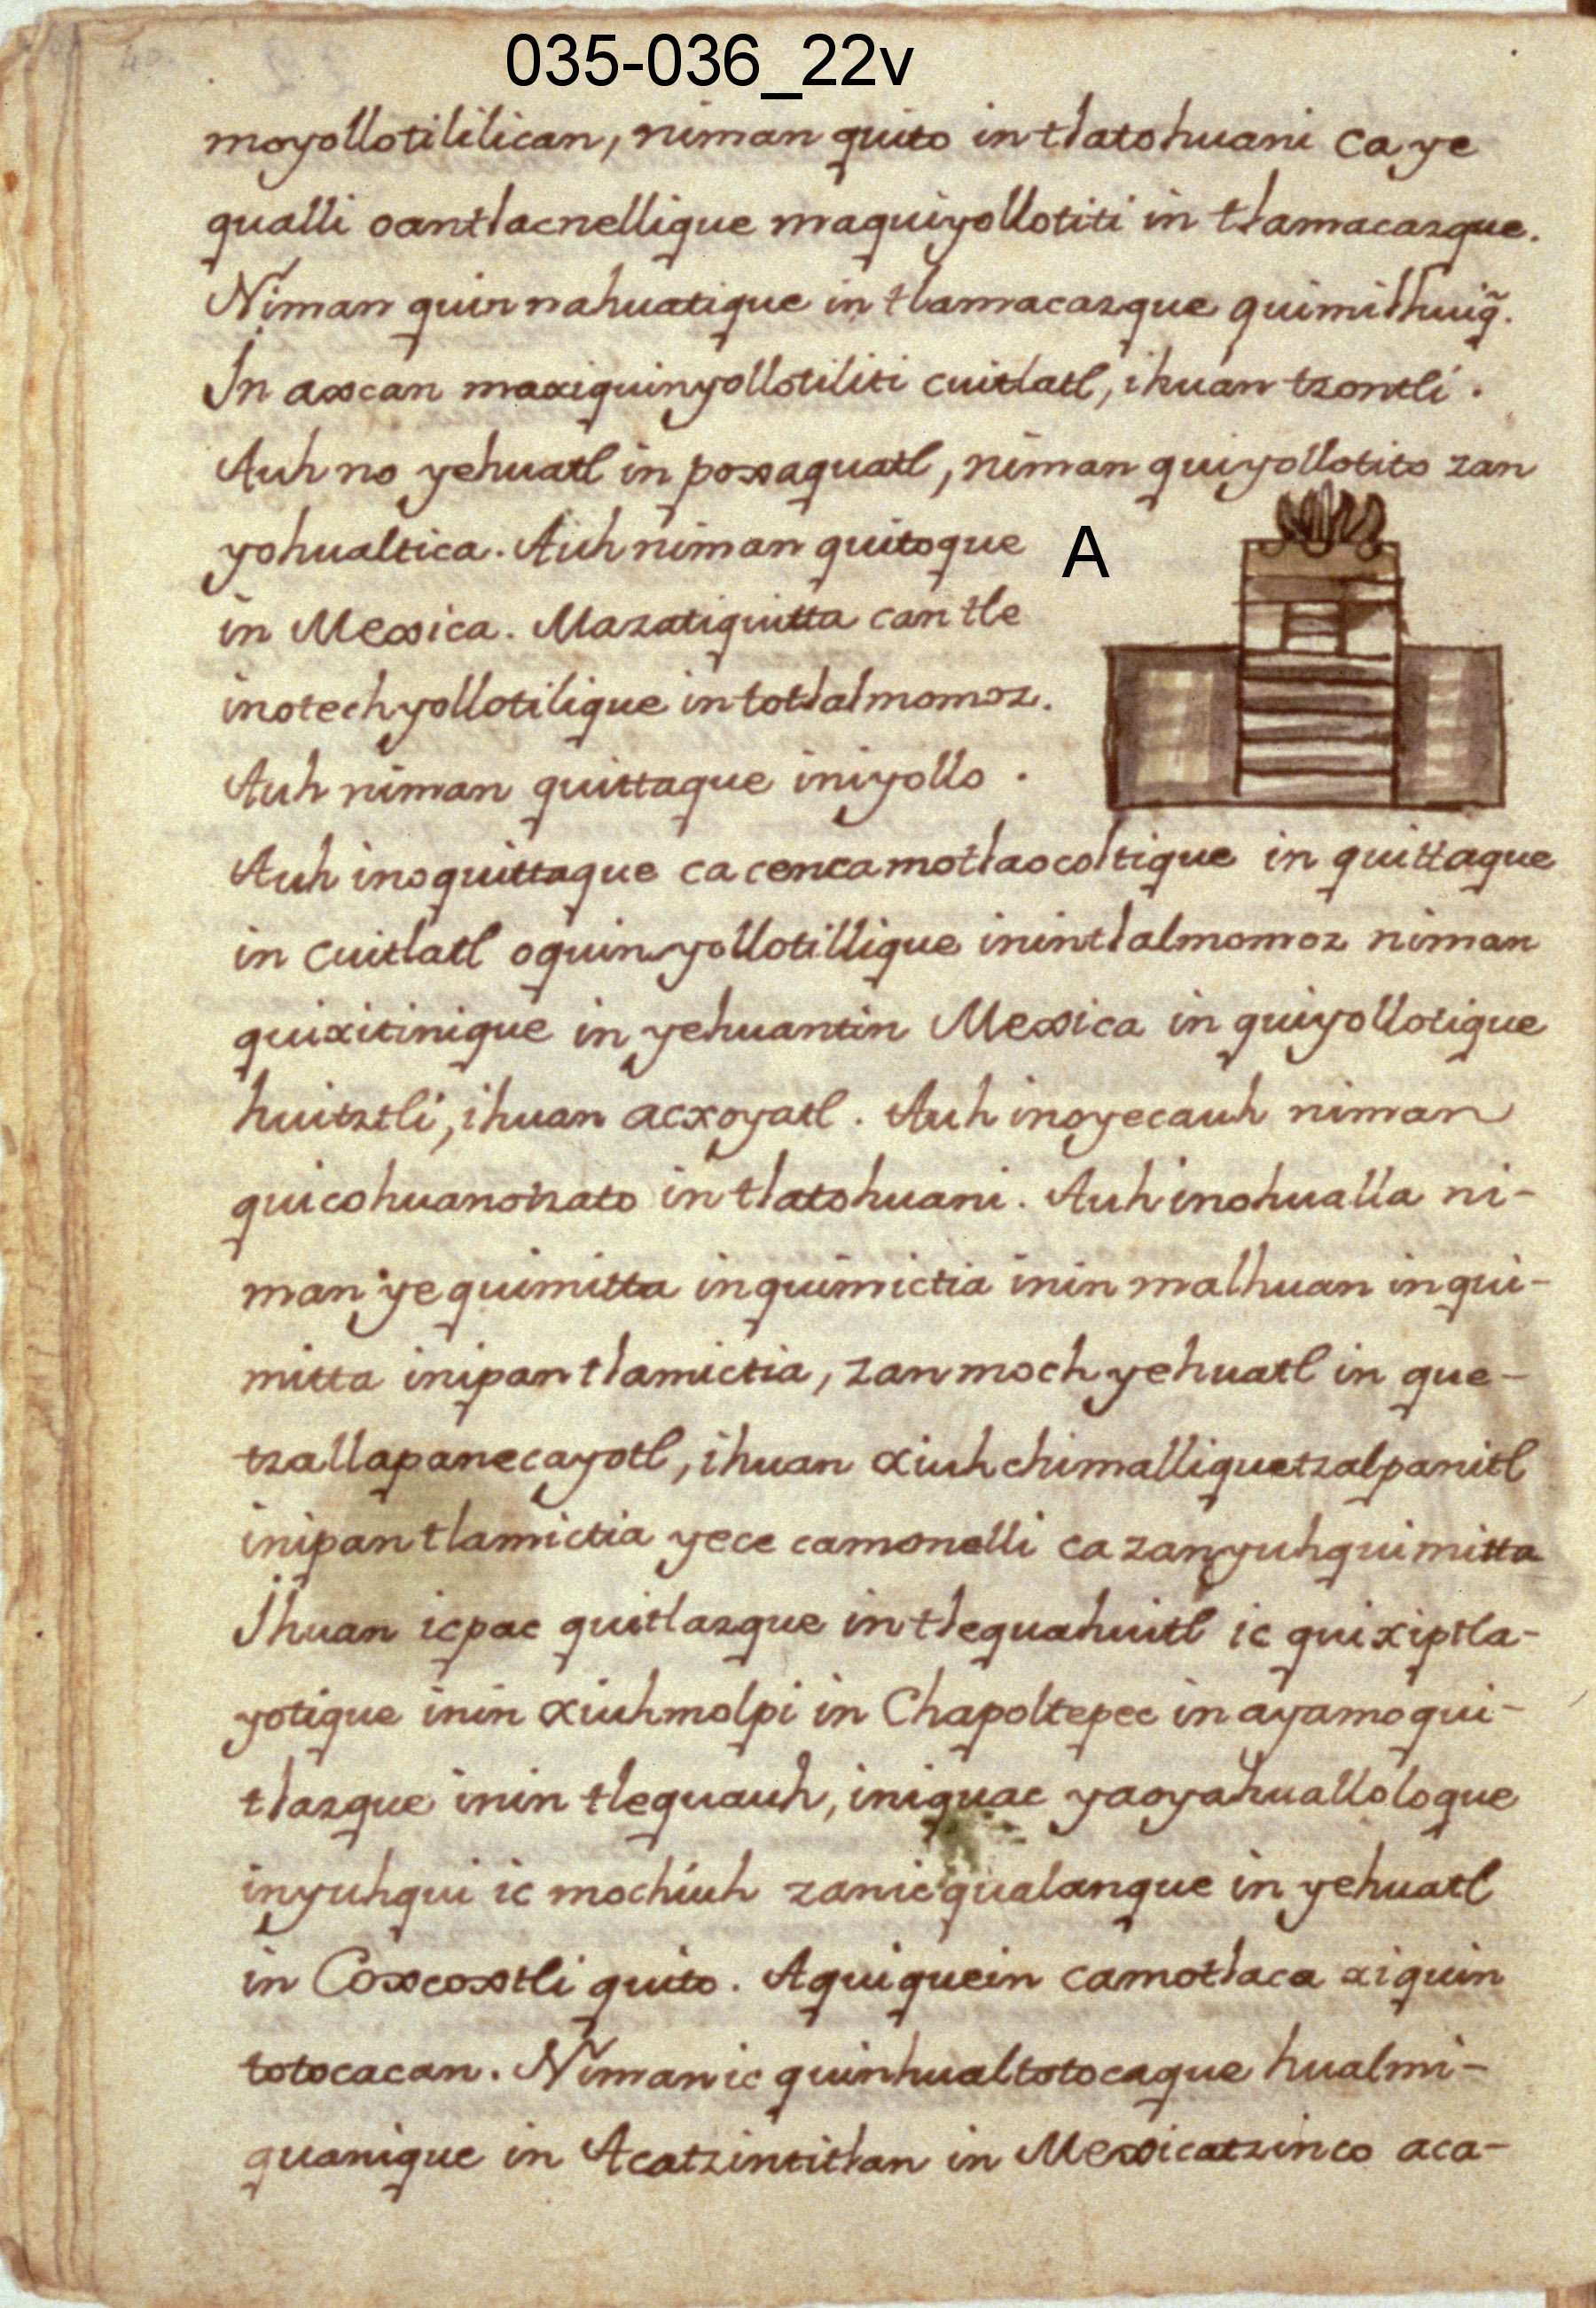 035-036_22v
moyollotililican, niman quito in tlatohuani ca ye
qualli oantlacnellique maquiyollotiti in tlamacazque.
Niman quin nahuatique in tlamacazque quimilhuiq̃.
In axcan maxiquinyollotiliti cuitlatl, ihuan tzontli.
Auh no yehuatl in poxaquatl, niman quiyollotito zan
yohualtica. Auh niman quitoque
A
in Mexica. Mazatiquitta can tle
inotechyollotilique in totlalmomoz.
Auh niman quittaque iniyollo.
Auh inoquittaque ca cenca motlaocoltique in quittaque
in cuitlatl oquin yollotillique inintlalmomoz niman
quixitinique in yehuantin Mexica in quiyollotique
huitztli, ihuan acxoyatl. Auh inoyecauh niman
quicohuanotzato in tlatohuani. Auh inohualla ni-
man ye quimitta inquimictia inin malhuan inqui-
mitta inipan tlamictia, zan moch yehuatl in que-
tzallapanecayotl, ihuan xiuhchimalliquetzalpanitl
inipan tlamictia yece camonelli ca zanyuhquimitta
Ihuan icpac quitlazque in tlequahuitl ic quixiptla-
yotique inin xiuhmolpi in Chapoltepec in ayamoqui-
tlazque inin tlequauh, iniquac yaoyahualloloque
inyuhqui ic mochiuh zanic qualanque in yehuatl
in Coxcoxtli quito. Aquiquein camotlaca xiquin
totocacan. Nimanic quinhualtotocaque hualmi-
quanique in Acatzintitlan in Mexicatzinco aca-